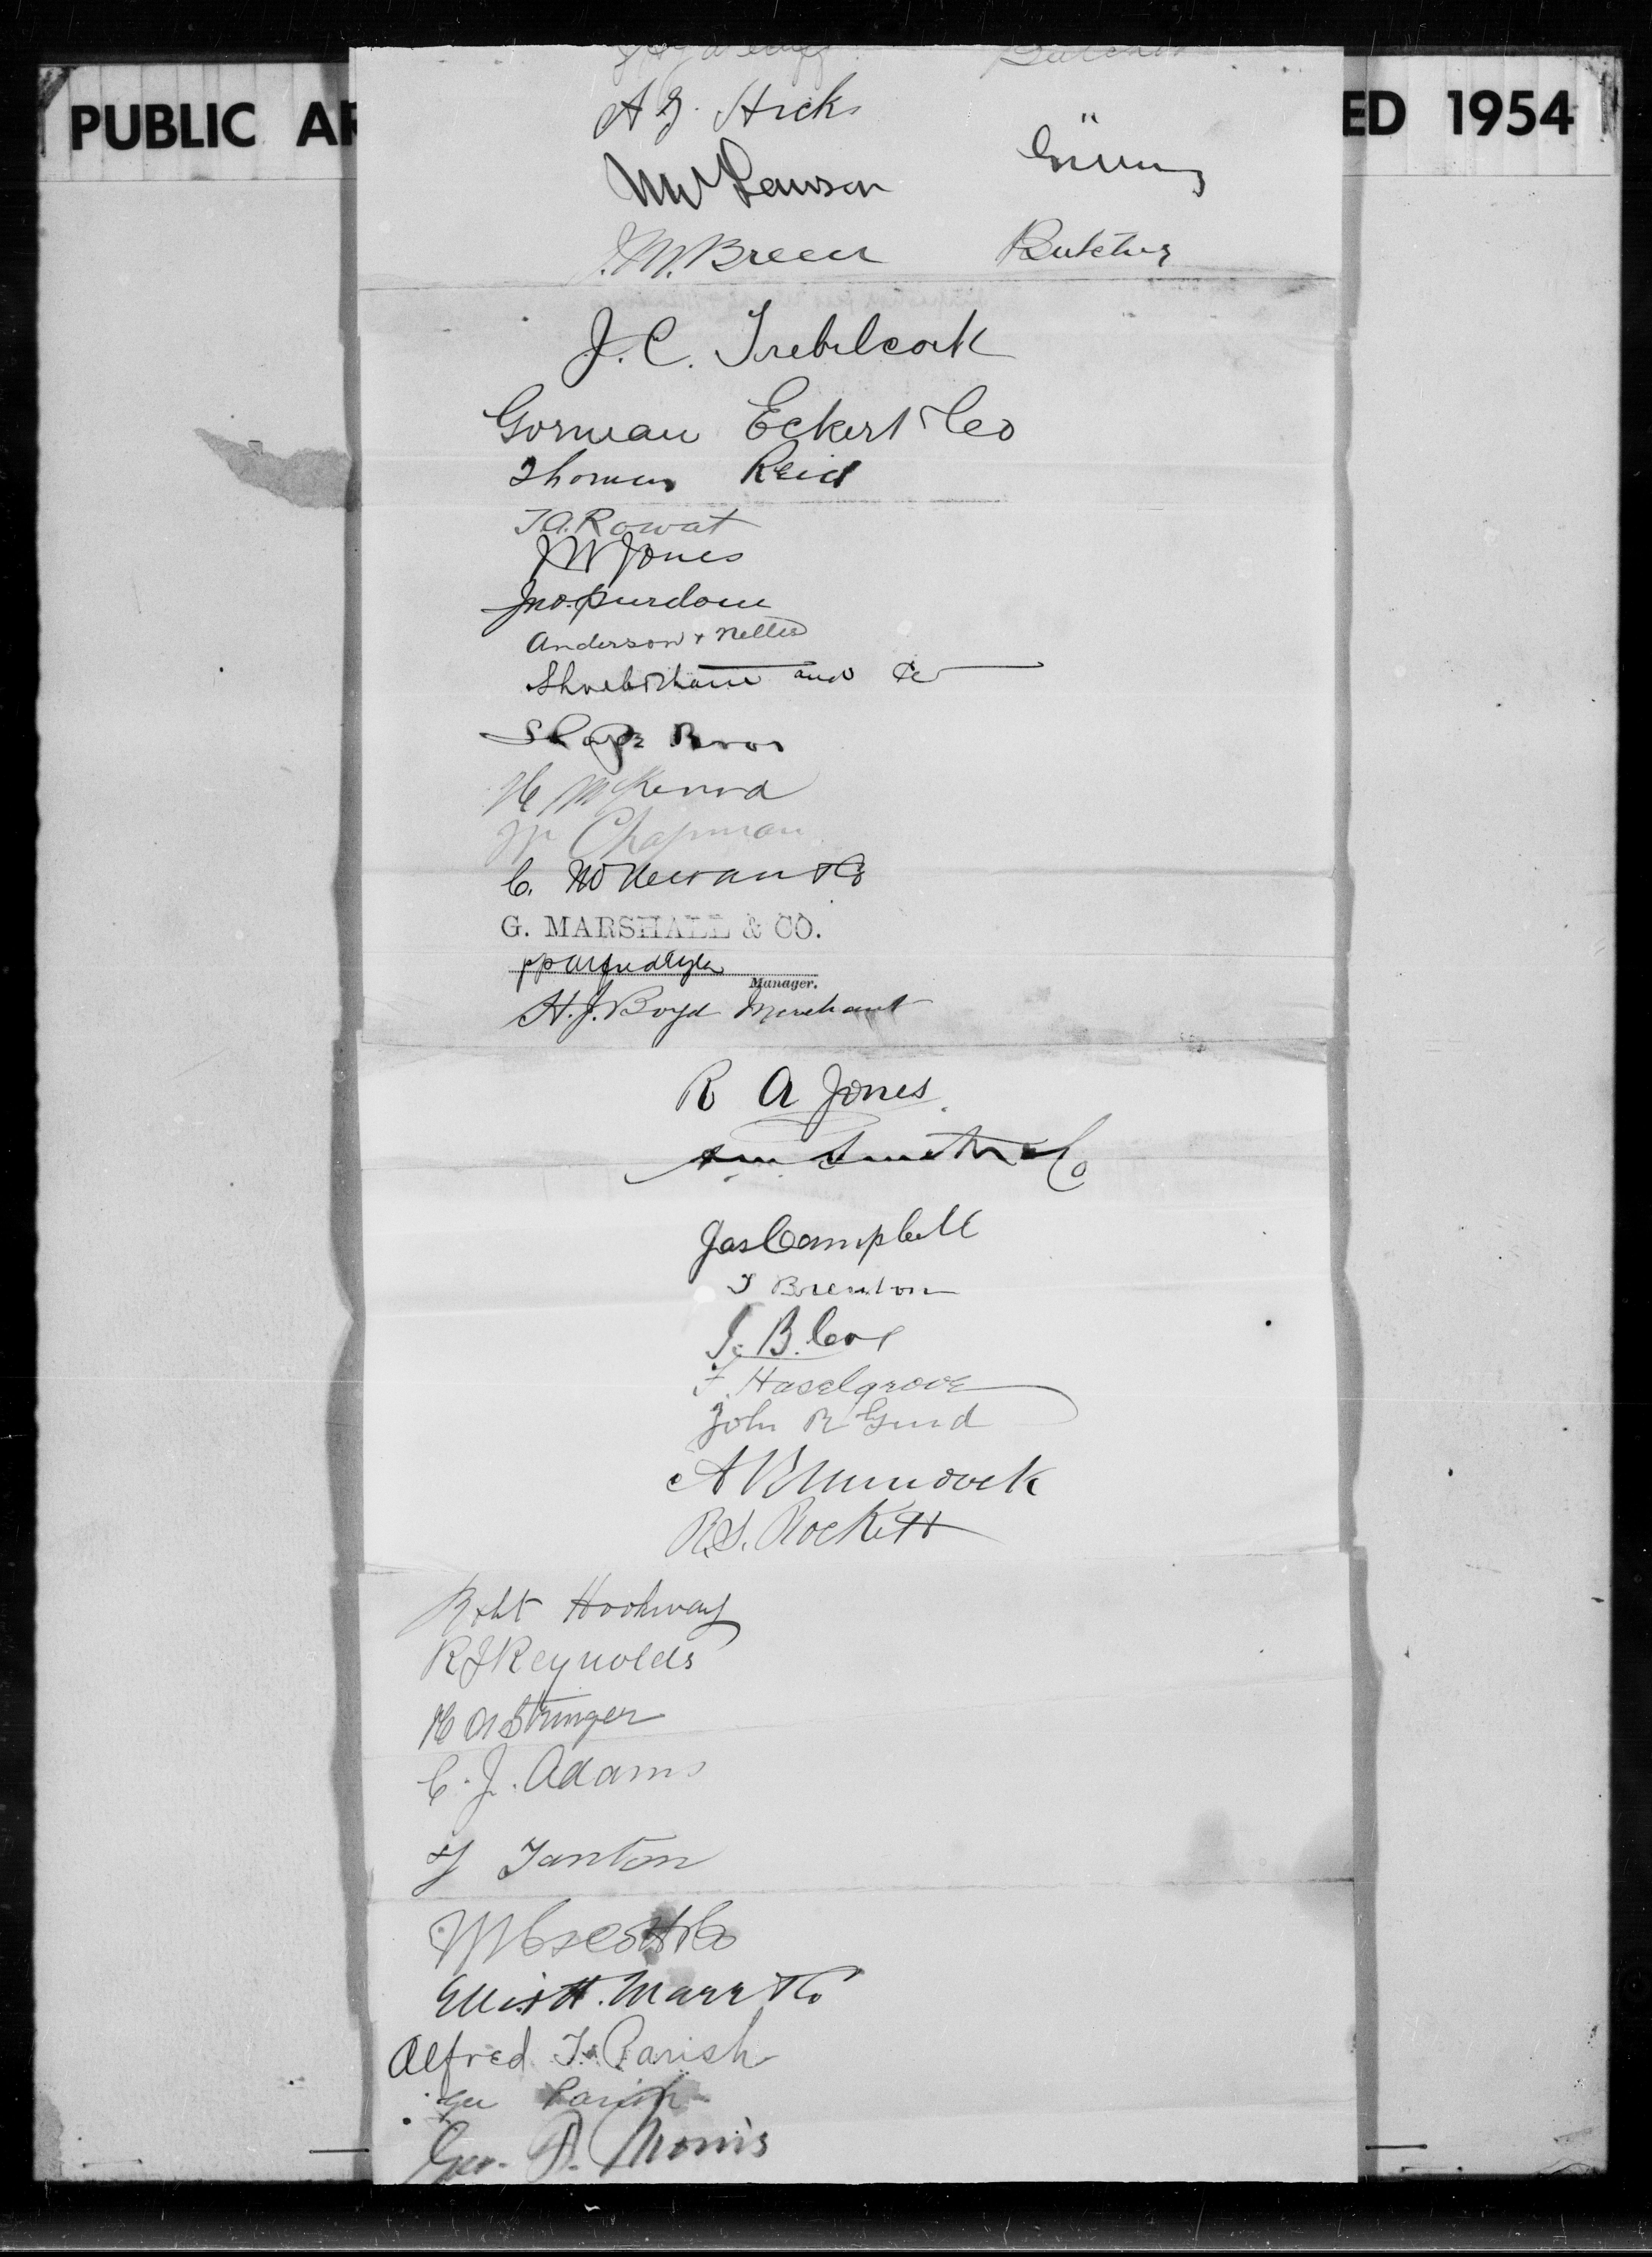 PUBLIC AR
ED 1954
Butcher
A G. Hicks
MW Lawson
J.M. Breen Butcher
J. C. Trebilcock
Gorman Eckert & Co
Thomas Reid
T.A. Rowat
JW Jones
Jno. Purdom
Anderson & Nelles
and Co
Bros
H McKenna
Chapman
C. & Co
G. MARSHALL & CO.
pp
Manager.
H. J. Boyd Merchant
R A Jones
Smith & Co
Jas Campbell
T Brenton
J. B. Cox
F. Haselgrove
John R Gurd
A B Murdock
R.S. Rockett
Robt Hookway
RJ Reynolds
H A Stringer
C. J. Adams
Tanton
Scott & Co
Elliott. Marr & Co
Alfred T. Parish
Geo Parish
Geo. Morris